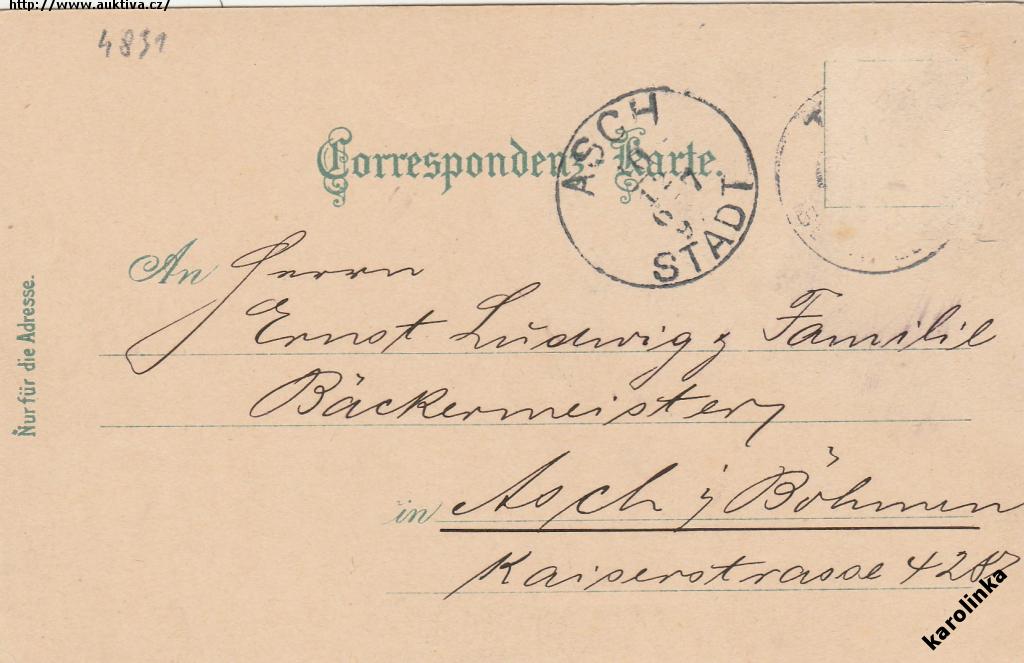 http://www.auktiva.cz/
4831
Correspondenz-Karte.
ASCH
STADT
An Herrn
Ernst Ludwig & Familie
Bäckermeister
in Asch i/ Böhmen
Kaiserstrasse
Nur für die Adresse.
karolinka